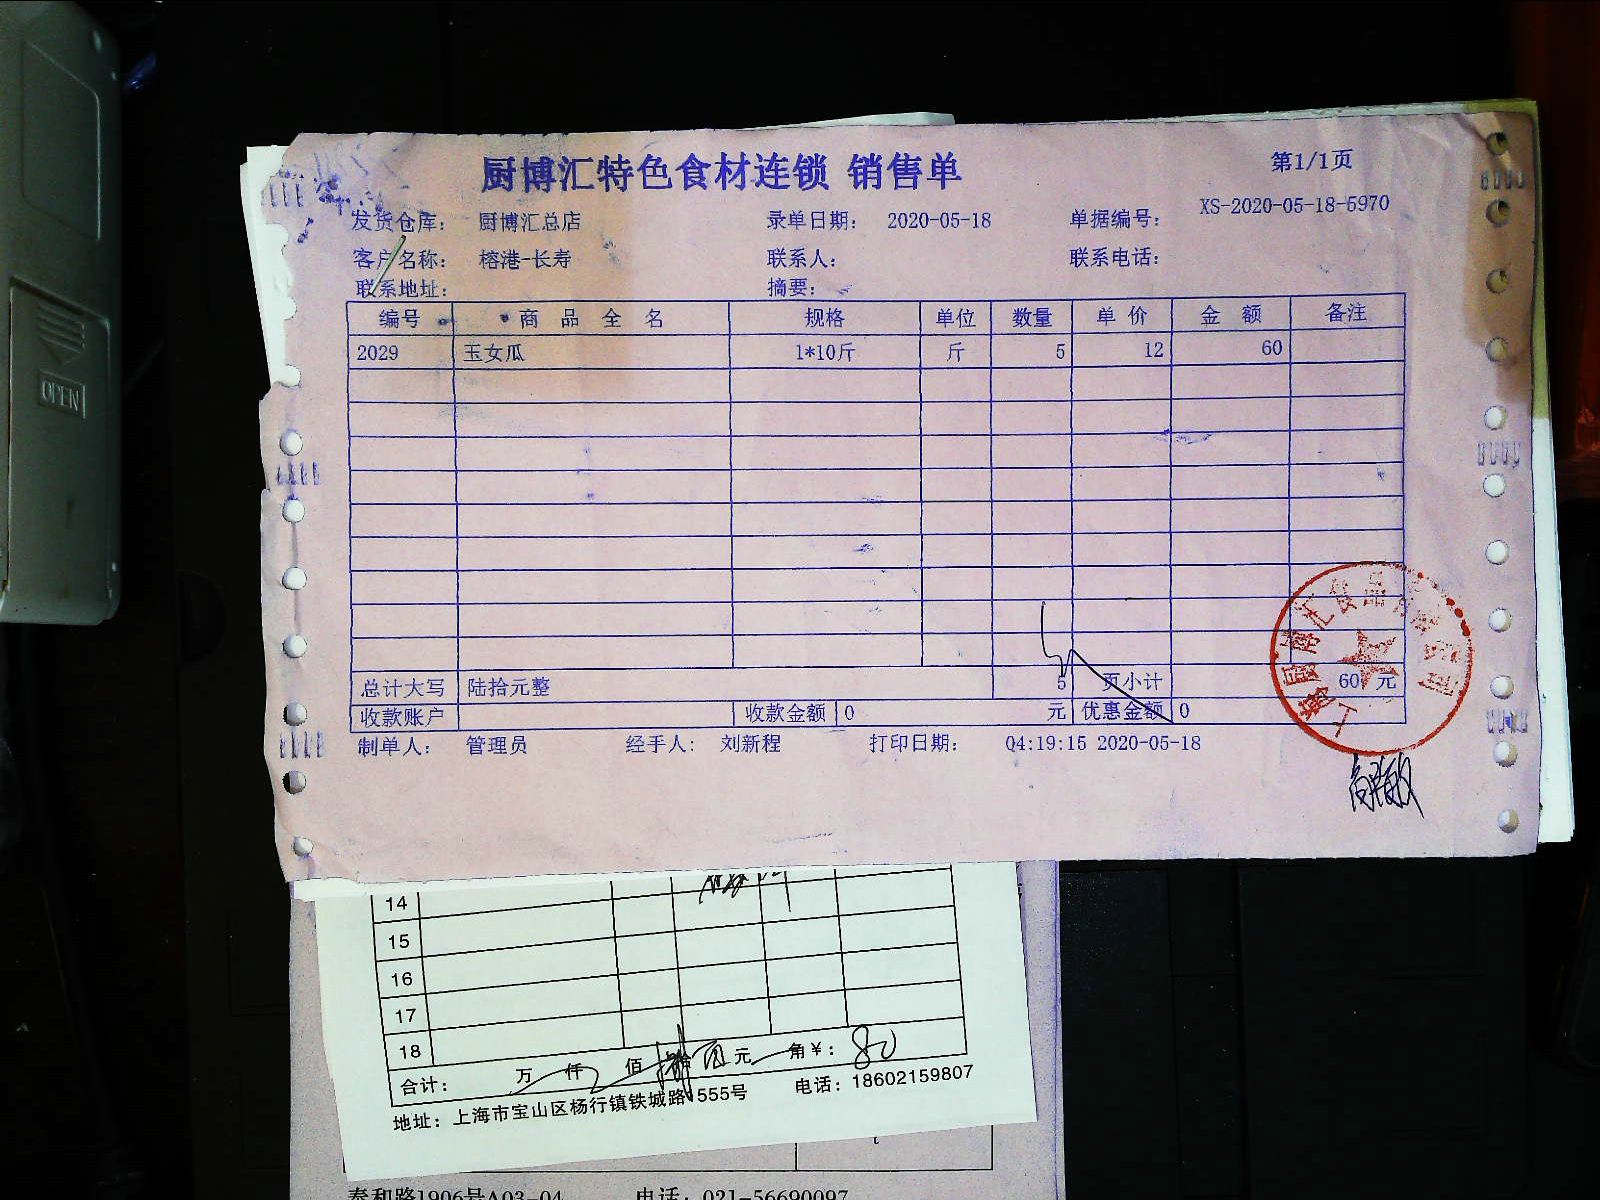 厨博汇特色食材连锁 销售单
第1/1页
发货仓库： 厨博汇总店 录单日期： 2020-05-18 单据编号： XS-2020-05-18-5970
客户名称： 榕港-长寿 联系人： 联系电话：
联系地址： 摘要：
编号 商品全名 规格 单位 数量 单价 金额 备注
2029 玉女瓜 1*10斤 斤 5 12 60
总计大写 陆拾元整 5 页小计 60 元
收款账户 收款金额 0 元 优惠金额 0
制单人： 管理员 经手人： 刘新程 打印日期： 04:19:15 2020-05-18
14
15
16
17
18
合计： 万 仟 佰 拾 元 角¥： 80
地址：上海市宝山区杨行镇铁城路1555号 电话：18602159807
泰和路1906号A03-04 电话：021-56690097
OPEN